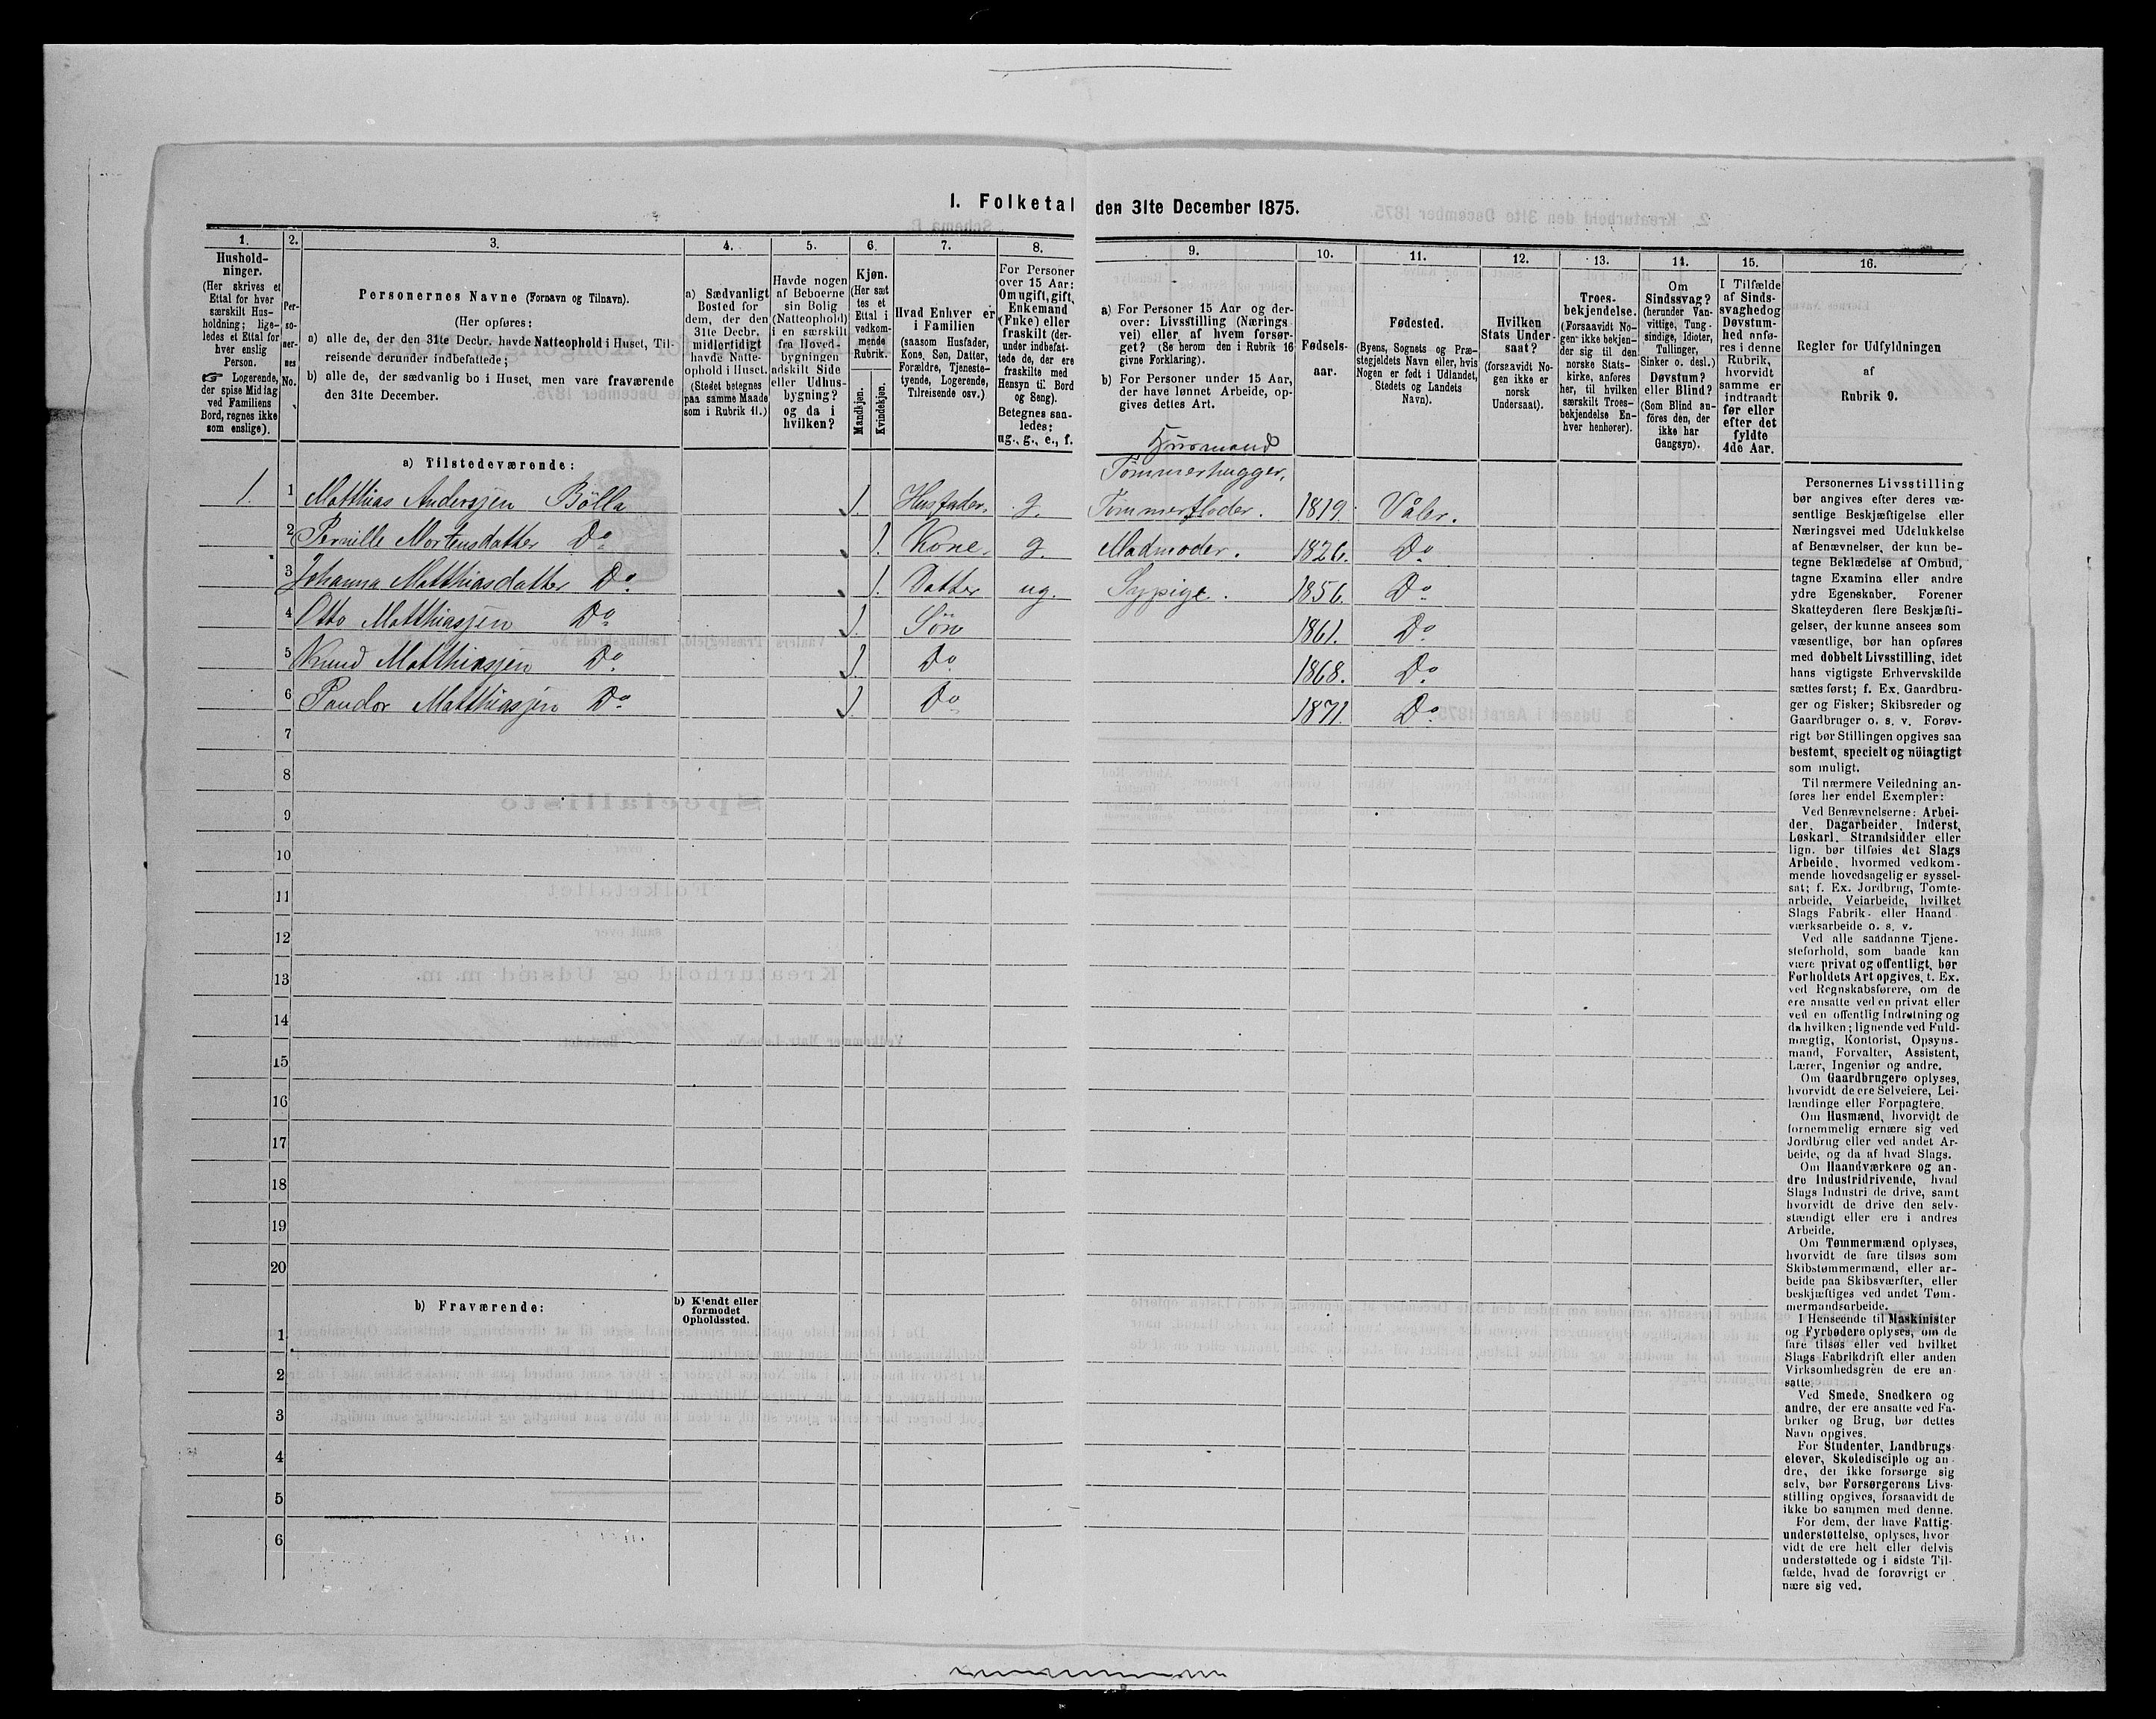 I. Folketal den 31te December 1875.
1.
2.
3.
4.
5.
6.
7.
8.
9.
10.
11.
12.
13.
14.
15.
16.
Hushold-
ninger.
(Her skrives et
Ettal for hver
særskilt Hus-
holdning; lige-
ledes et Ettal for
hver enslig
Person.
☞ Logerende,
der spise Middag
ved Familiens
Bord, regnes ikke
som enslige).
Per-
so-
ner-
nes
No.
Personernes Navne (Fornavn og Tilnavn).
(Her opføres:
a) alle de, der den 31te Decbr. havde Natteophold i Huset, Til-
reisende derunder indbefattede;
b) alle de, der sædvanlig bo i Huset, men vare fraværende
den 31te December.
a) Sædvanligt
Bosted for
dem, der den
31te Decbr.
midlertidigt
havde Natte-
ophold i Huset.
(Stedet betegnes
paa samme Maade
som i Rubrik 11.)
Havde nogen
af Beboerne
sin Bolig
(Natteophold)
i en særskilt
fra Hoved-
bygningen
adskilt Side
eller Udhus-
bygning?
og da i
hvilken?
Kjøn.
(Her sæt-
tes et
Ettal i
vedkom-
mende
Rubrik.
Mandkjøn.
Kvindekjøn.
Hvad Enhver er
i Familien
(saasom Husfader,
Kone, Søn, Datter,
Forældre, Tjeneste-
tyende, Logerende,
Tilreisende osv.)
For Personer
over 15 Aar:
Om ugift, gift,
Enkemand
(Enke) eller
fraskilt (der-
under indbefat-
tede de, der ere
fraskilte med
Hensyn til Bord
og Seng).
Betegnes saa-
ledes:
ug., g., e., f.
a) For Personer 15 Aar og der-
over: Livsstilling (Nærings
vei) eller af hvem forsør-
get? (Se herom den i Rubrik 16
givne Forklaring).
b) For Personer under 15 Aar,
der have lønnet Arbeide, op-
gives dettes Art.
Fødsels-
aar.
Fødested.
(Byens, Sognets og Præ-
stegjeldets Navn eller, hvis
Nogen er født i Udlandet,
Stedets og Landets
Navn).
Hvilken
Stats Under-
saat?
(forsaavidt No-
gen ikke er
norsk
Undersaat).
Troes-
bekjendelse.
(Forsaavidt No-
gen ikke bekjen-
der sig til den
norske Stats-
kirke, anføres
her, til hvilken
særskilt Troes-
bekjendelse En-
hver henhører).
Om
Sindssvag?
(herunder Van-
vittige, Tung-
sindige, Idioter,
Tullinger,
Sinker o. desl.)
Døvstum?
eller Blind?
(Som Blind an-
föres den, der
ikke har
Gangsyn).
I Tilfælde
af Sinds-
svaghedog
Døvstum-
hed anfø-
res i denne
Rubrik,
hvorvidt
samme er
indtraadt
før eller
efter det
fyldte
4de Aar.
Regler for Udfyldningen
af
Rubrik 9.
a) Tilstedeværende:
Husmand
Tømmerhugger,
1. 1 Matthias Andersjen Bölla 1. Husfader. g. Tømmerfløder. 1819. Våler.
2 Pernille Mortensdatter Do 1. Kone. g. Madmoder. 1826. Do
3 Johanna Matthiasdatter Do. 1. Datter ug. Sypige. 1856. Do
4 Otto Matthiasjen Do 1. Sön 1861. Do
5 Knud Matthiasjen Do. 1 Do 1868. Do.
6 Paudor Matthiasjen Do 1 Do 1871 Do.
7
8
9
10
11
12
13
14
15
16
17
18
19
20
b) Fraværende:
b) Kjendt eller
formodet
Opholdssted.
1
2
3
4
5
6
Personernes Livsstilling
bør angives efter deres væ-
sentlige Beskjæftigelse eller
Næringsvei med Udelukkelse
af Benævnelser, der kun be-
tegne Beklædelse af Ombud,
tagne Examina eller andre
ydre Egenskaber. Forener
Skatteyderen flere Beskjæfti-
gelser, der kunne ansees som
væsentlige, bør han opføres
med dobbelt Livsstilling, idet
hans vigtigste Erhvervskilde
sættes først; f. Ex. Gaardbru-
ger og Fisker; Skibsreder og
Gaardbruger o. s. v. Forøv-
rigt bør Stillingen opgives saa
bestemt, specielt og nöiagtigt
som muligt.
Til nærmere Veiledning an-
føres her endel Exempler:
Ved Benævnelserne: Arbei-
der, Dagarbeider, Inderst,
Løskarl, Strandsidder eller
lign. bør tilføies det Slags
Arbeide, hvormed vedkom-
mende hovedsagelig er syssel-
sat; f. Ex. Jordbrug, Tomte-
arbeide, Veiarbeide, hvilket
Slags Fabrik- eller Haand
værksarbeide o. s. v.
Ved alle saadanne Tjene-
steforhold, som baade kan
være privat og offentligt, bør
Forholdets Art opgives, t. Ex.
ved Regnskabsførere, om de
ere ansatte ved en privat eller
ved en offentlig Indretning og
da hvilken; lignende ved Fuld-
mægtig, Kontorist, Opsyns-
mand, Forvalter, Assistent,
Lærer, Ingeniør og andre.
Om Gaardbrugere oplyses,
hvorvidt de ere Selveiere, Lei-
lændinge eller Forpagtere.
Om Husmænd, hvorvidt de
fornemmelig ernære sig ved
Jordbrug eller ved andet Ar-
beide, og da af hvad Slags.
Om Haandværkere og an-
dre Industridrivende, hvad
Slags Industri de drive, samt
hvorvidt de drive den selv-
stændigt eller ere i andres
Arbeide.
Om Tømmermænd oplyses,
hvorvidt de fare tilsøs som
Skibstømmermænd, eller ar-
beide paa Skibsværfter, eller
beskjæftiges ved andet Tøm-
mermandsarbeide.
I Henseende til Maskinister
og Fyrbødere oplyses, om de
fare tilsøs eller ved hvilket
Slags Fabrikdrift eller anden
Virksomhedsgren de ere an-
satte.
Ved Smede, Snedkere og
andre, der ere ansatte ved Fa-
briker og Brug, bør dettes
Navn opgives.
For Studenter, Landbrugs-
elever, Skoledisciple og an-
dre, der ikke forsørge sig
selv, bør Forsørgerens Livs-
stilling opgives, forsaavidt de
ikke bo sammen med denne.
For dem, der have Fattig-
understøttelse, oplyses, hvor
vidt de ere helt eller delvis
understøttede og i sidste Til-
fælde, hvad de forøvrigt er
nære sig ved.